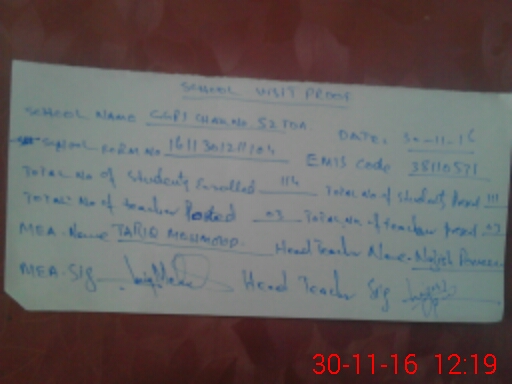 SCHOOL VISIT PROOF
SCHOOL NAME GGPS CHAK NO. 52 TDA DATE: 30-11-16
SCHOOL FORM NO EMIS Code 38110571
TOTAL No of Students Enrolled 114 TOTAL No of Students 111
TOTAL No of teacher Posted 03 TOTAL No. of teacher 03
MEA. Name TARIQ MEHMOOD Head Teacher Name
MEA. Sig Head Teacher Sig
30-11-16 12:19